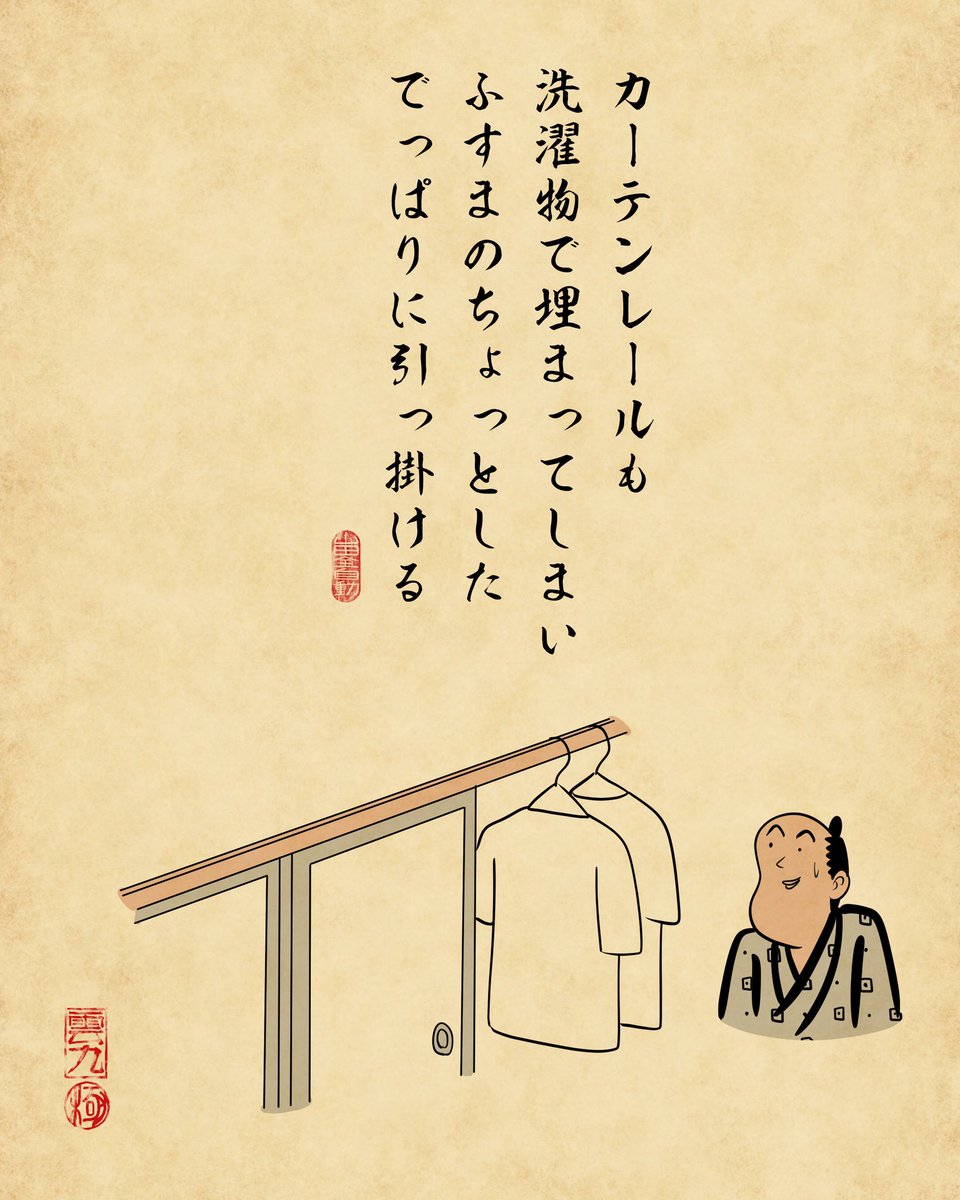 カーテンレールも
洗濯物で埋まってしまい
ふすまのちょっとした
でっぱりに引っ掛ける